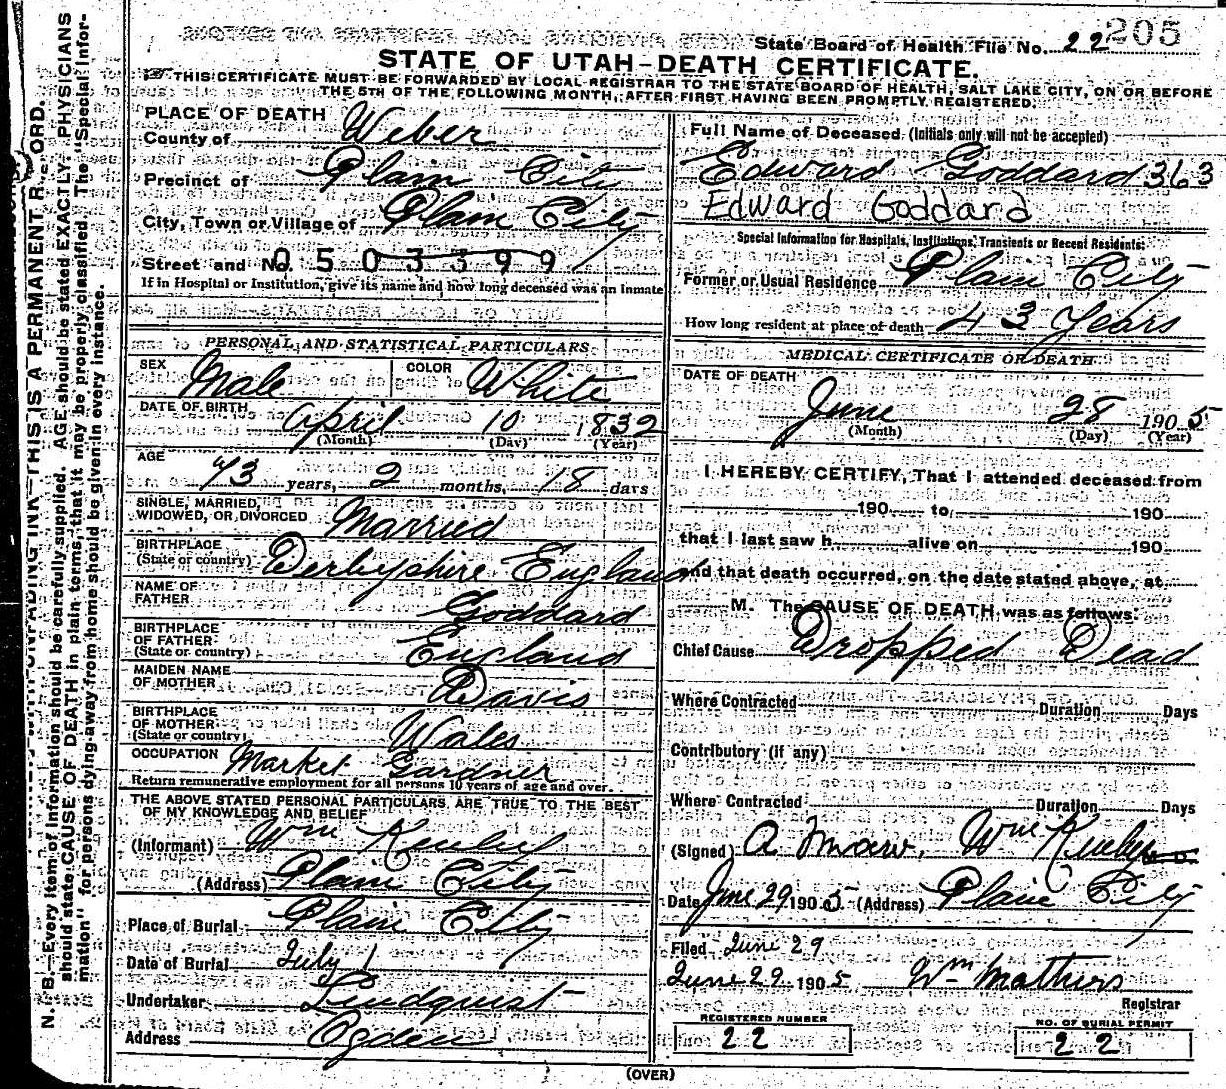 State Board of Health File No. 22 205
STATE OF UTAH—DEATH CERTIFICATE.
THIS CERTIFICATE MUST BE FORWARDED BY LOCAL REGISTRAR TO THE STATE BOARD OF HEALTH, SALT LAKE CITY, ON OR BEFORE
THE 5TH OF THE FOLLOWING MONTH, AFTER FIRST HAVING BEEN PROMPTLY REGISTERED.
PLACE OF DEATH
County of Weber
Precinct of Plain City
City, Town or Village of Plain City
Street and No. 0503399
If in Hospital or Institution, give its name and how long deceased was an inmate
PERSONAL AND STATISTICAL PARTICULARS
SEX Male COLOR White
DATE OF BIRTH April 10 1832
(Month) (Day) (Year)
AGE 73 years, 2 months, 18 days
SINGLE, MARRIED,
WIDOWED, OR DIVORCED Married
BIRTHPLACE
(State or country) Derbyshire England
NAME OF
FATHER Goddard
BIRTHPLACE
OF FATHER
(State or country) England
MAIDEN NAME
OF MOTHER Davis
BIRTHPLACE
OF MOTHER
(State or country) Wales
OCCUPATION Market Gardner
Return remunerative employment for all persons 10 years of age and over.
THE ABOVE STATED PERSONAL PARTICULARS ARE TRUE TO THE BEST
OF MY KNOWLEDGE AND BELIEF
(Informant) Wm
(Address) Plain City
Place of Burial Plain City
Date of Burial July 1
Undertaker Lindquist
Address Ogden
Full Name of Deceased. (Initials only will not be accepted)
Edward Goddard 363
Edward Goddard
Special Information for Hospitals, Institutions, Transients or Recent Residents:
Former or Usual Residence Plain City
How long resident at place of death 43 Years
MEDICAL CERTIFICATE OF DEATH
DATE OF DEATH
June 28 1905
(Month) (Day) (Year)
I HEREBY CERTIFY, That I attended deceased from
190 to 190
that I last saw h alive on 190
and that death occurred, on the date stated above, at
M. The CAUSE OF DEATH was as follows:
Chief Cause Dropped Dead
Where Contracted Duration Days
Contributory (if any)
Where Contracted Duration Days
(Signed) A Maw, Wm M. D.
Date June 29 1905 (Address) Plain City
Filed June 29
June 29 1905 Wm
Registrar
REGISTERED NUMBER
22
NO. OF BURIAL PERMIT
22
(OVER)
THIS IS A PERMANENT
N. B.—Every item of information should be carefully supplied. AGE should be stated EXACTLY. PHYSICIANS
should state CAUSE OF DEATH in plain terms, that it may be properly classified. The "Special Infor-
mation" for persons dying away from home should be given in every instance.